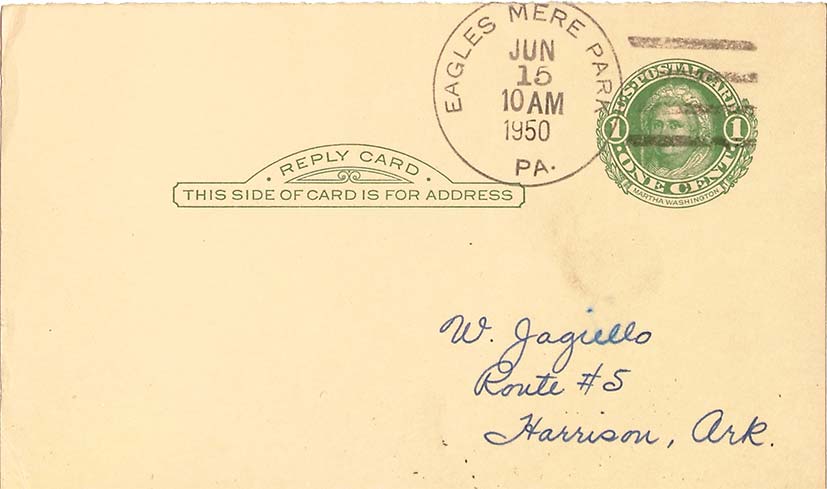 EAGLES MERE PARK
JUN
15
10 AM
1950
PA.
U.S. POSTAL CARD
1 1
ONE CENT
MARTHA WASHINGTON
REPLY CARD
THIS SIDE OF CARD IS FOR ADDRESS
W. Jagiello
Route #5
Harrison, Ark.